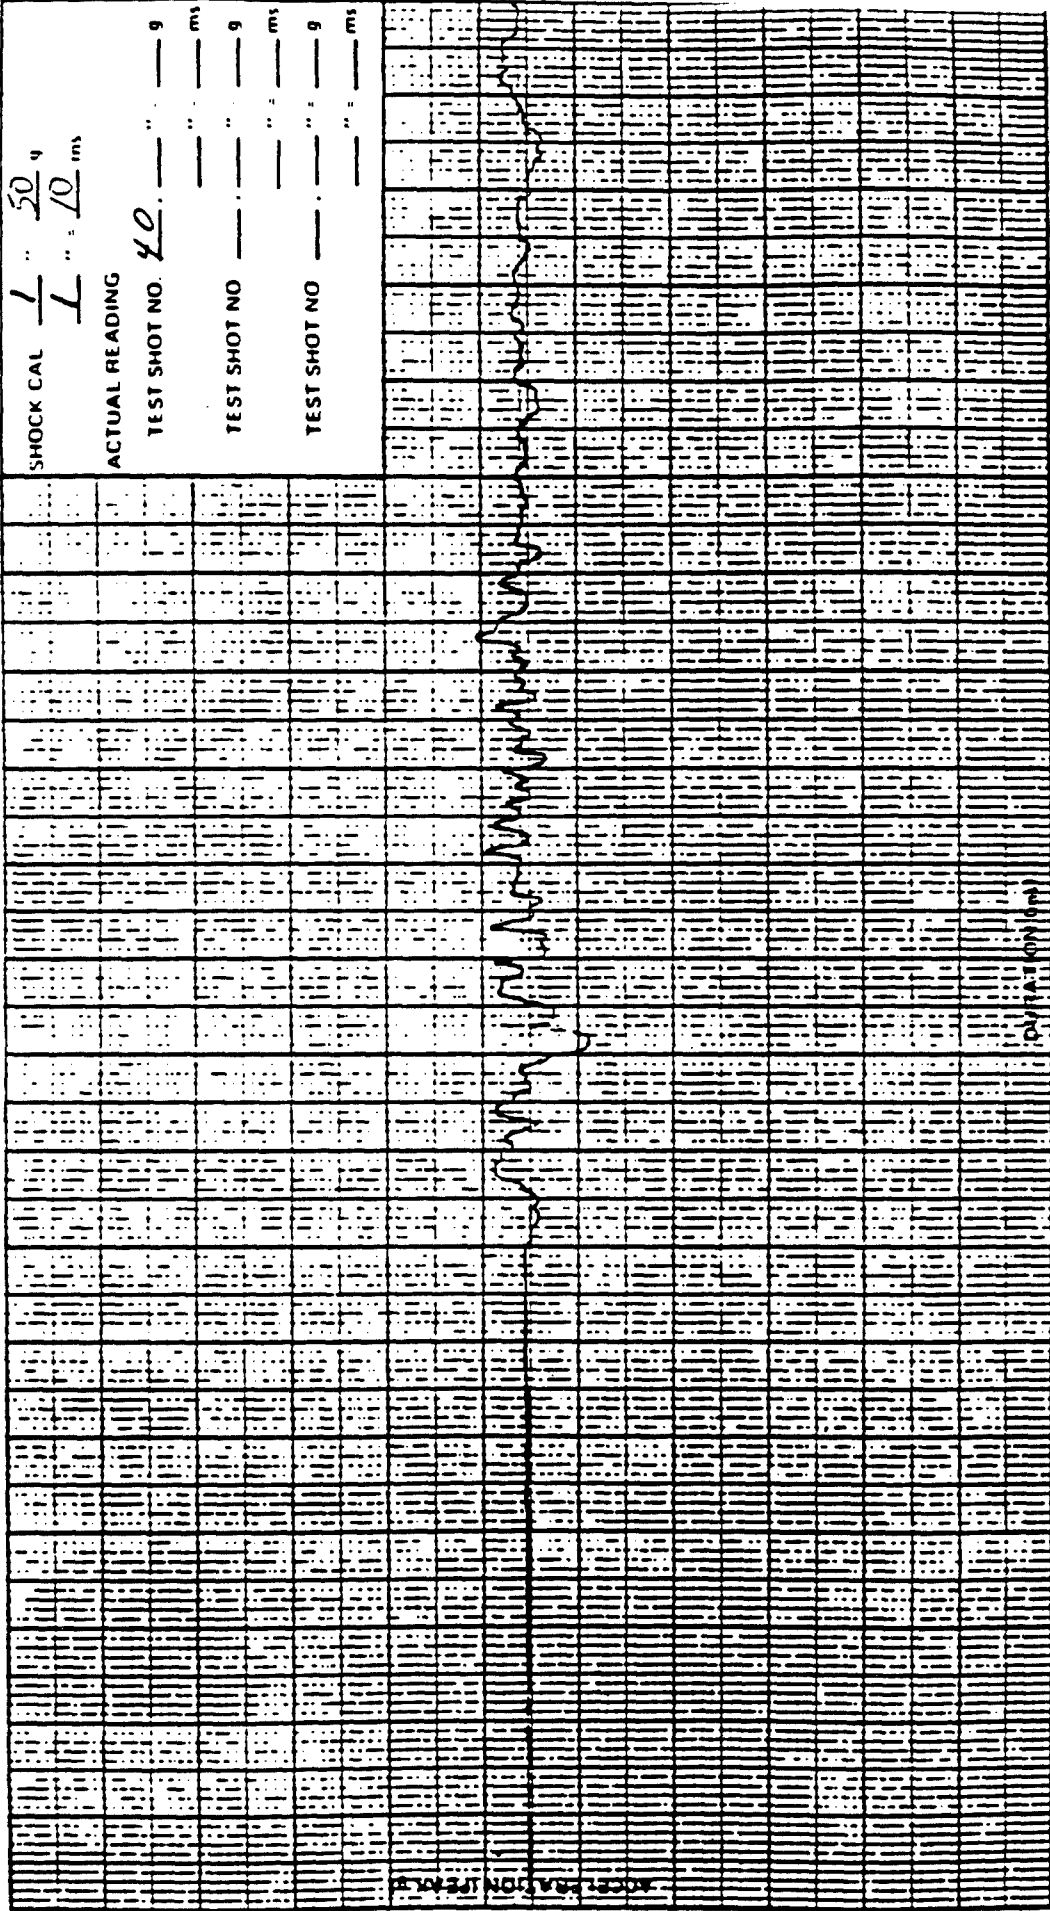 SHOCK CAL 1 " 50 g
1 " = 10 ms
ACTUAL READING
TEST SHOT NO. 40 . ___ " . ___ g
___ " . ___ ms
TEST SHOT NO ___ . ___ " . ___ g
___ " = ___ ms
TEST SHOT NO ___ . ___ " = ___ g
___ " = ___ ms
ACCELERATION (PEAK g)
DURATION (ms)